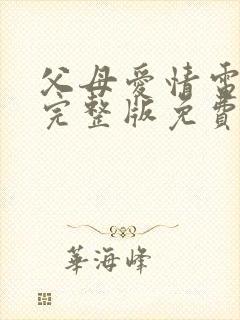 父母爱情雷
完整版免費
華海峰